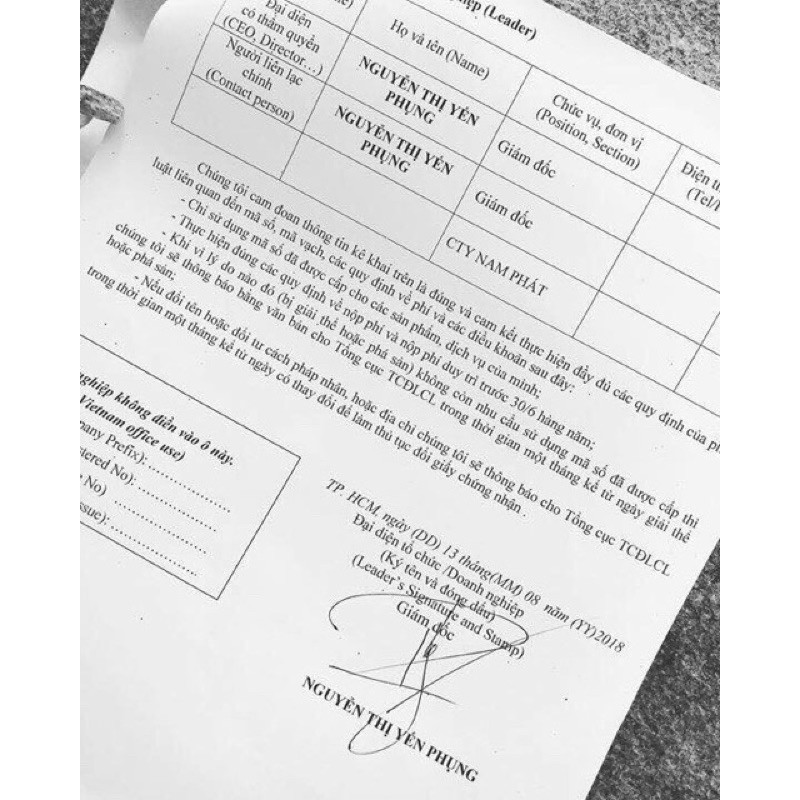 (Leader)
Đại diện
có thẩm quyền
(CEO, Director…)
Họ và tên (Name)
Chức vụ, đơn vị
(Position, Section)
Điện
NGUYỄN THỊ YẾN
PHỤNG
Giám đốc
Người liên lạc
chính
(Contact person)
NGUYỄN THỊ YẾN
PHỤNG
Giám đốc
CTY NAM PHÁT
Chúng tôi cam đoan thông tin kê khai trên là đúng và cam kết thực hiện đầy đủ các quy định của
luật liên quan đến mã số, mã vạch, các quy định về phí và các điều khoản sau đây:
- Chỉ sử dụng mã số đã được cấp cho các sản phẩm, dịch vụ của mình;
- Thực hiện đúng các quy định về nộp phí và nộp phí duy trì trước 30/6 hàng năm;
- Khi vì lý do nào đó (bị giải thể hoặc phá sản) không còn nhu cầu sử dụng mã số đã được cấp thì
chúng tôi sẽ thông báo bằng văn bản cho Tổng cục TCĐLCL trong thời gian một tháng kể từ ngày giải thể
hoặc phá sản;
- Nếu đổi tên hoặc đổi tư cách pháp nhân, hoặc địa chỉ chúng tôi sẽ thông báo cho Tổng cục TCĐLCL
trong thời gian một tháng kể từ ngày có thay đổi để làm thủ tục đổi giấy chứng nhận.
nghiệp không điền vào ô này.
Vietnam office use)
Prefix):
No):
No)
TP. HCM, ngày (DD) 13 tháng(MM) 08 năm (YY)2018
Đại diện tổ chức /Doanh nghiệp
(Ký tên và đóng dấu)
(Leader's Signature and Stamp)
Giám đốc
NGUYỄN THỊ YẾN PHỤNG